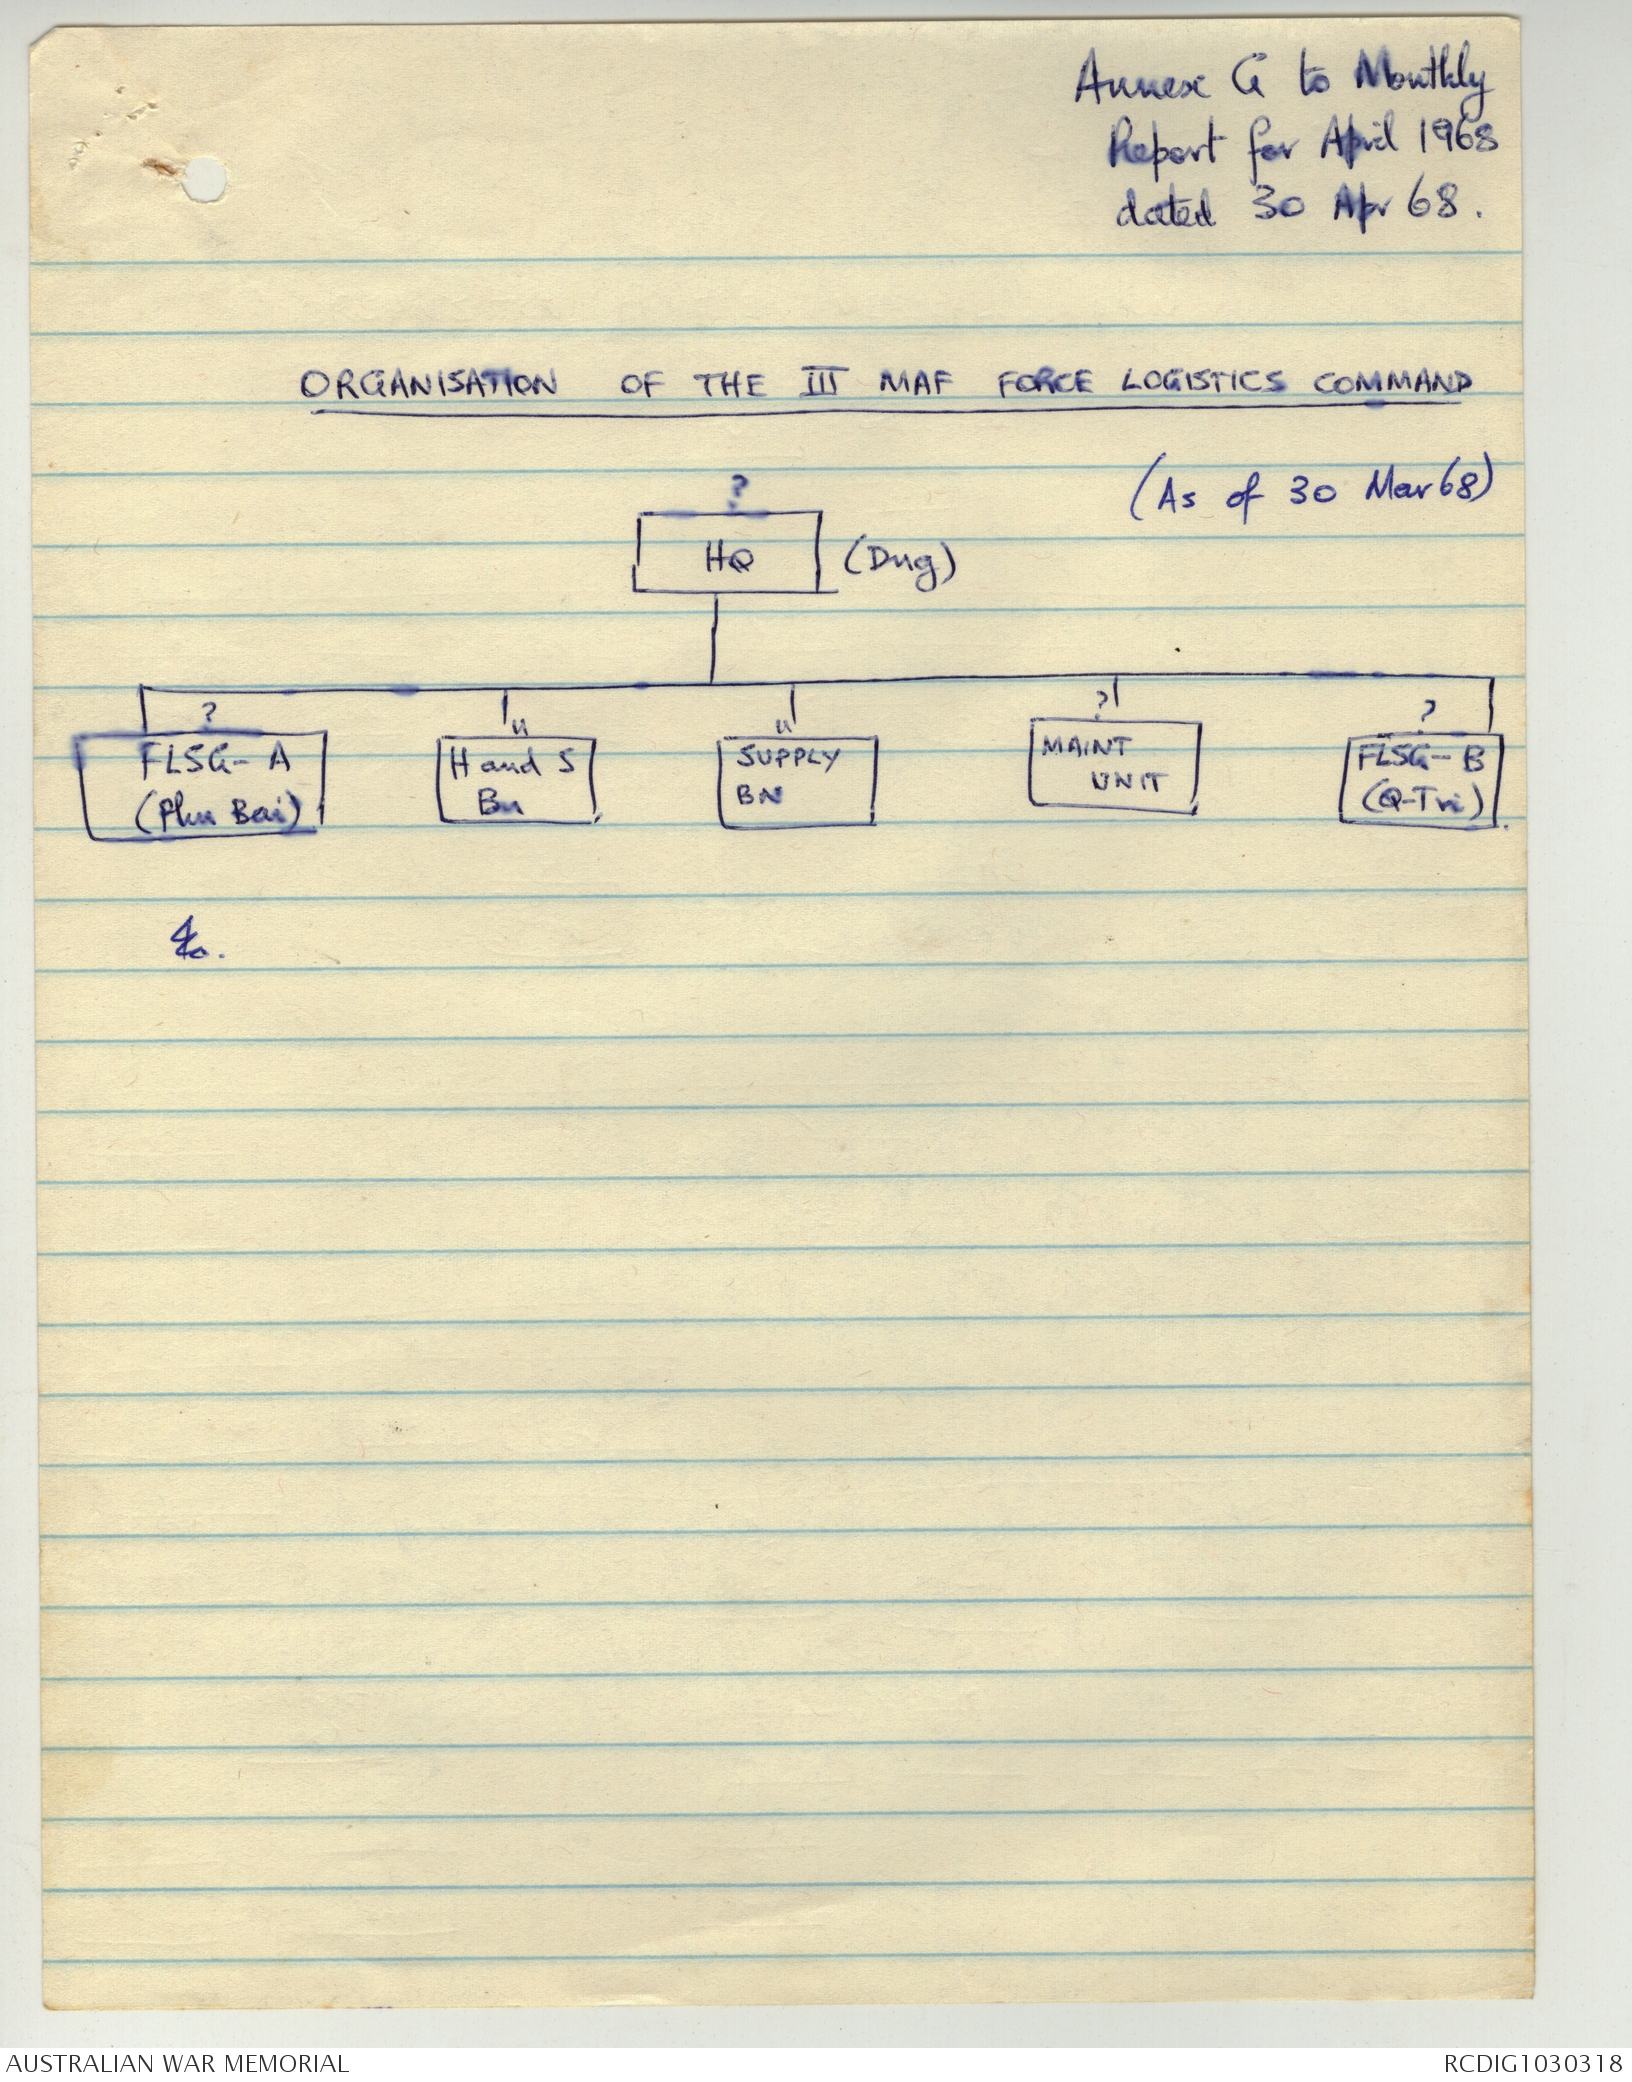 Annex G to Monthly
Report for April 1968
dated 30 Apr 68.
ORGANISATION OF THE III MAF FORCE LOGISTICS COMMAND
(As of 30 Mar 68)
?
HQ (Dng)
? " " ? ?
FLSG-A
(Phu Bai)
H and S
Bn
SUPPLY
BN
MAINT
UNIT
FLSG-B
(Q-Tri)
AUSTRALIAN WAR MEMORIAL
RCDIG1030318